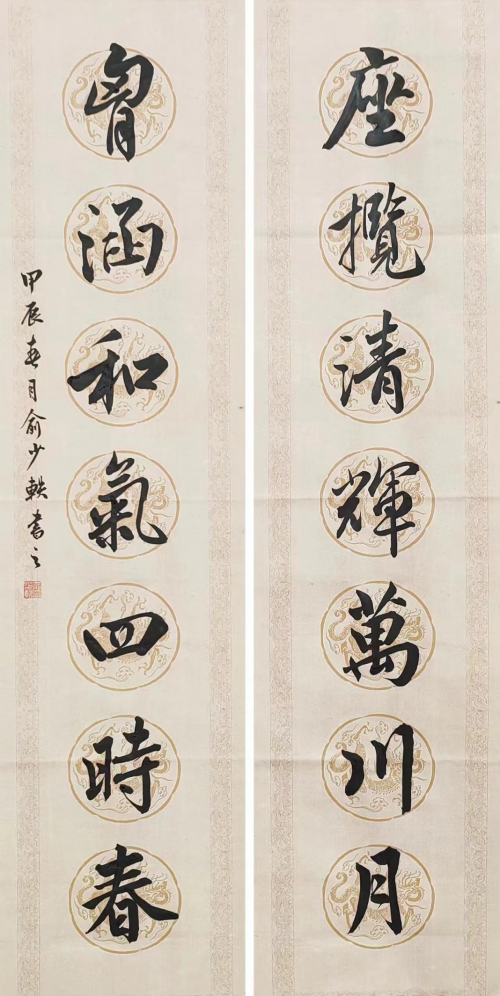 座攬清輝萬川月
胷涵和氣四時春
甲辰春月俞少軼書之